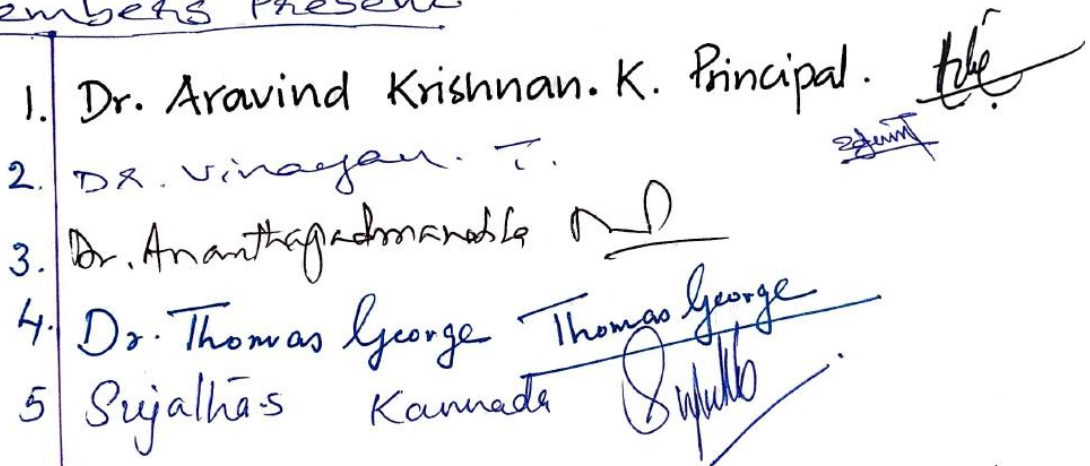 Members Present
1. Dr. Aravind Krishnan. K. Principal.
2. DR. Vinayan. T.
3. Dr. Ananthapadmanabha
4. Dr. Thomas George Thomas George
5 Sujatha.s Kannada